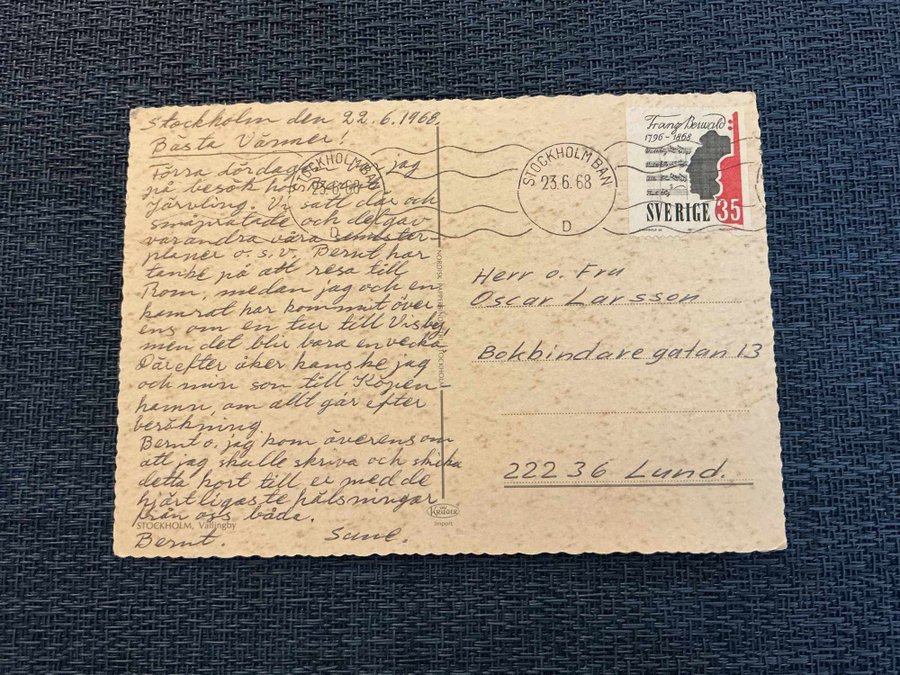 Stockholm den 22.6.1968.
Bästa Vänner!
Förra lördagen var jag
på besök hos
Järvling. Vi satt där och
småpratade och delgav
varandra våra semester-
planer o.s.v. Bernt har
tanke på att resa till
Rom, medan jag och en
kamrat har kommit över
ens om en tur till Visby,
men det blir bara en vecka
Därefter åker kanske jag
och min son till Köpen-
hamn, om allt går efter
beräkning.
Bernt o. jag kom överens om
att jag skulle skriva och skicka
detta kort till er med de
hjärtligaste hälsningar
från oss båda.
Bernt. Sune.
STOCKHOLM, Vällingby
STOCKHOLM BAN
23.6.68
D
STOCKHOLM BAN
23.6.68
D
Franz Berwald
1796-1868
SVERIGE 35
Herr o. Fru
Oscar Larsson
Bokbindaregatan 13
222 36 Lund.
Krüger
Import